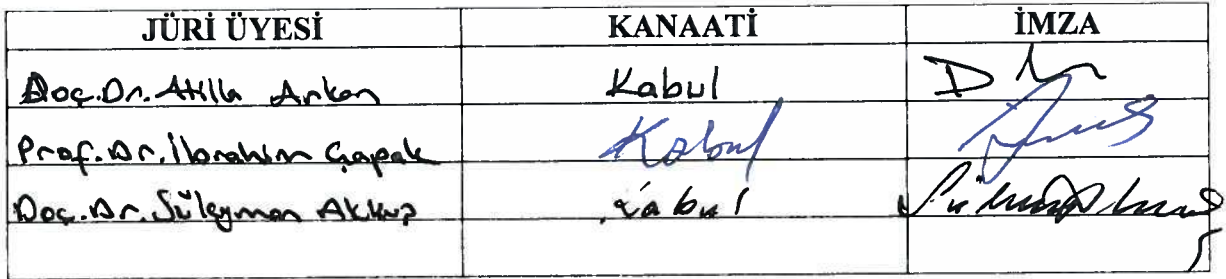 JÜRİ ÜYESİ KANAATİ İMZA
Doç.Dr. Atilla Arkan Kabul
Prof.Dr. İbrahim Çapak Kabul
Doç.Dr. Süleyman Akkuş Kabul